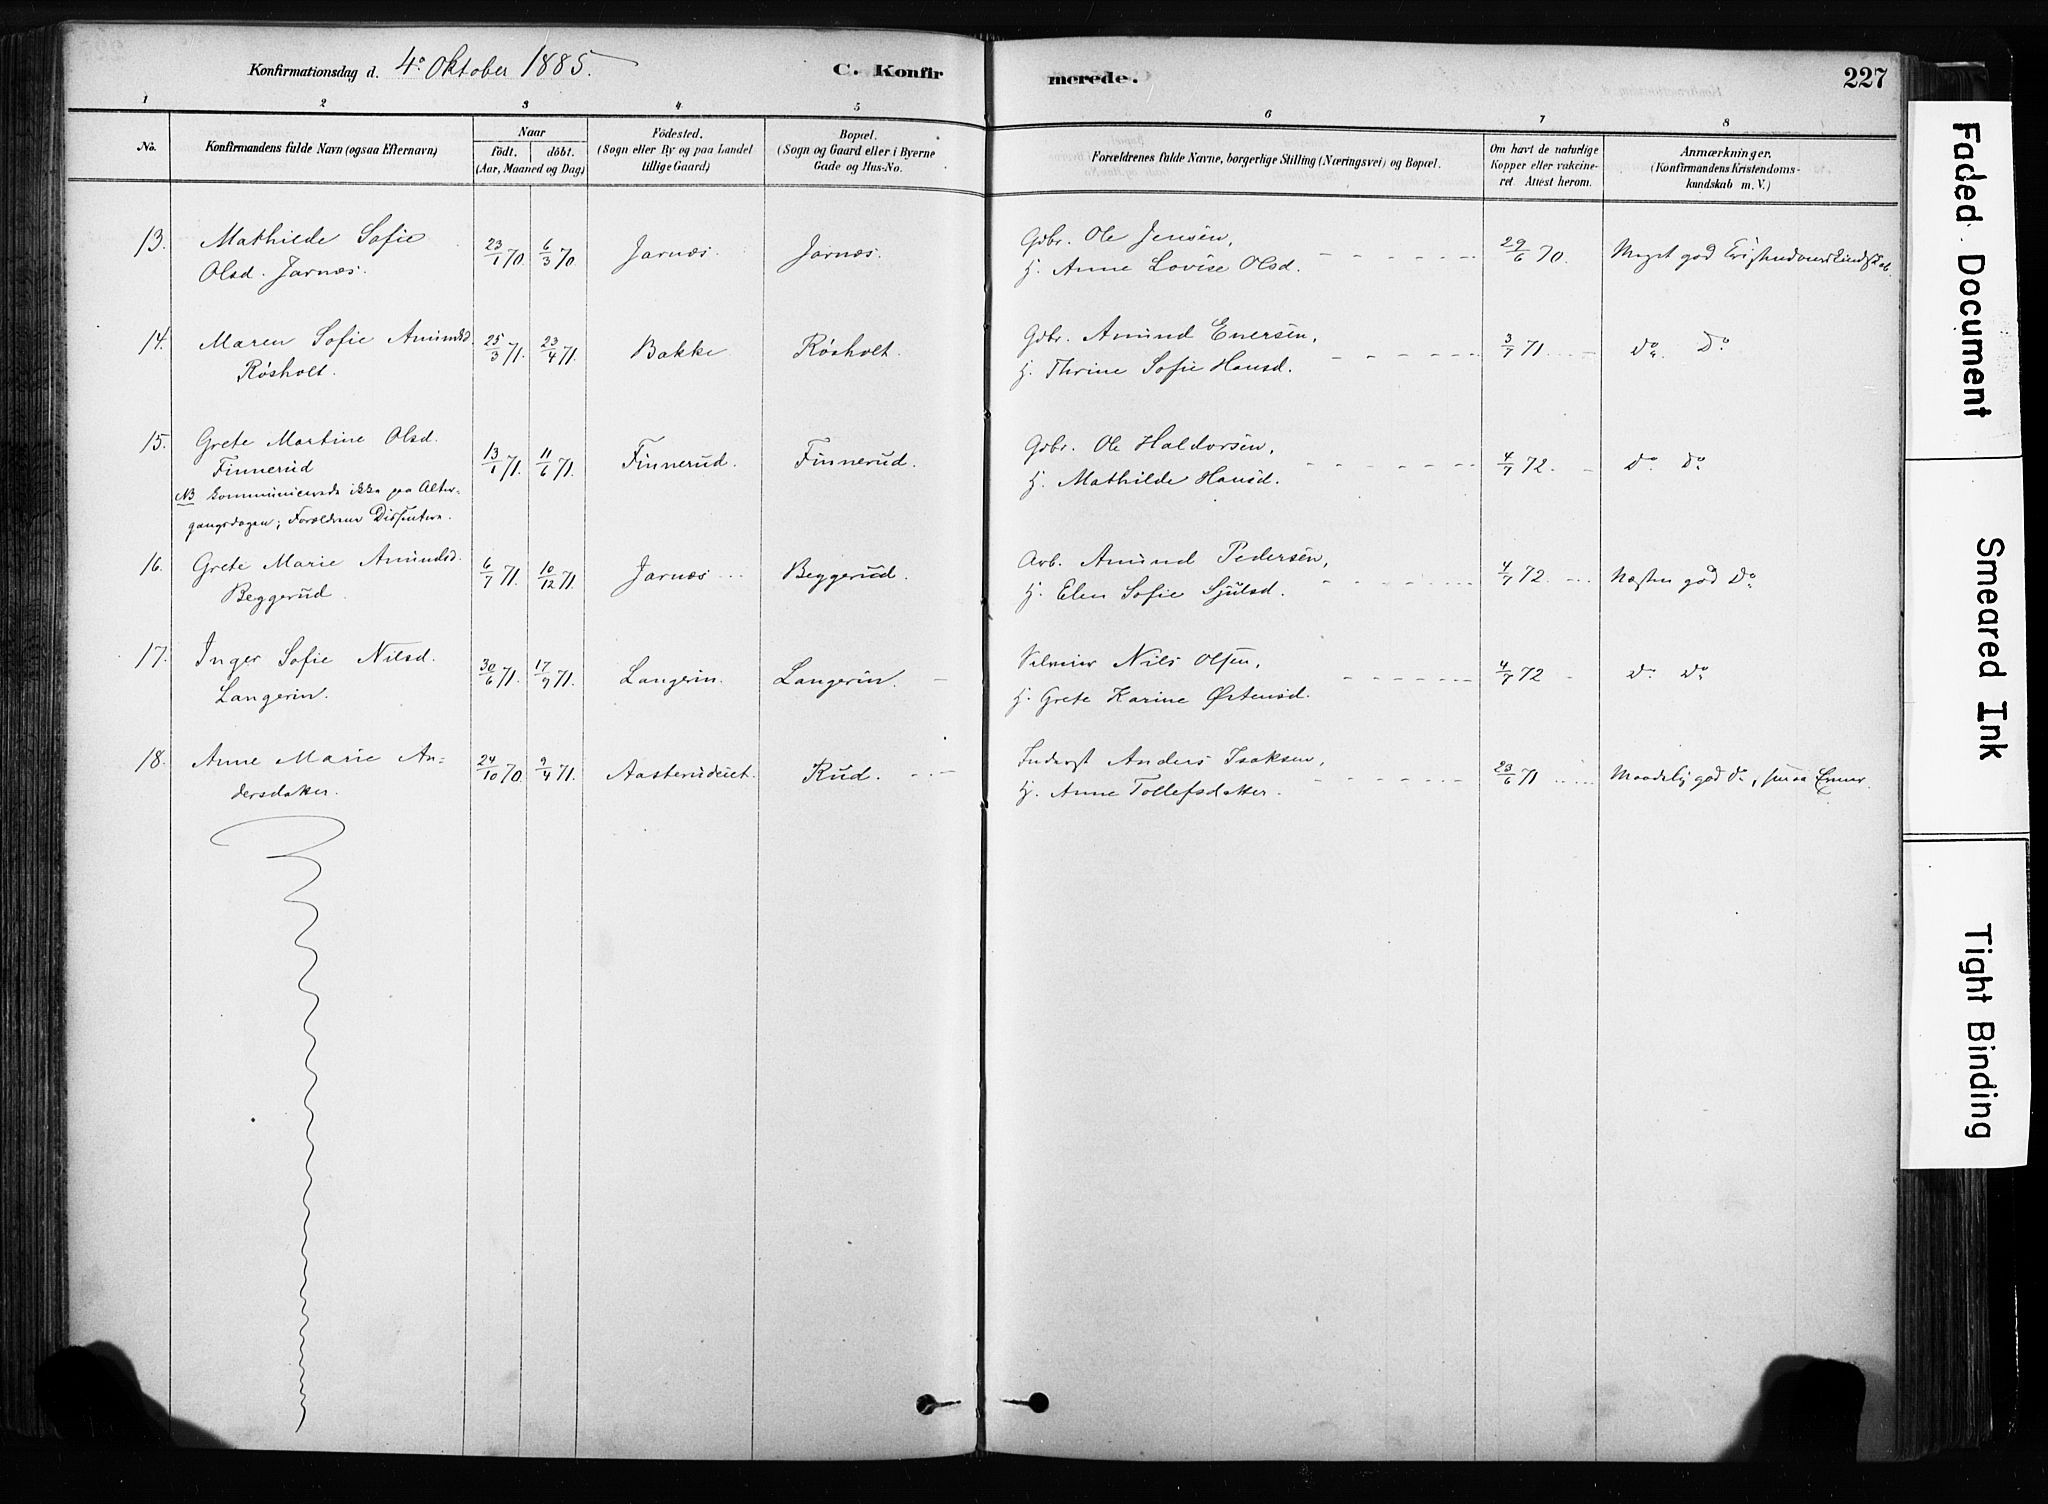 Konfirmationsdag d. 4de Oktober 1885.
C. Konfirmerede.
227
1 2 3 4 5 6 7 8
No.
Konfirmandens fulde Navn (ogsaa Efternavn)
Naar
födt. döbt.
(Aar, Maaned og Dag)
Födested.
(Sogn eller By og paa Landet
tillige Gaard)
Bopæl.
(Sogn og Gaard eller i Byerne
Gade og Hus-No.
Forældrenes fulde Navne, borgerlige Stilling (Næringsvei) og Bopæl.
Om havt de naturlige
Kopper eller vakcine-
ret Attest herom.
Anmærkninger.
(Konfirmandens Kristendoms-
kundskab m. V.)
13. Mathilde Sofie
Olsd. Jarnæs.
23/1 70. 6/3 70. Jarnæs. Jarnæs.
Gdbr. Ole Jensen,
H. Anne Lovise Olsd.
29/6 70. Meget god Kristendomskundskab.
14. Maren Sofie Amundsd.
Røsholt.
25/3 71. 23/4 71. Bakke Røsholt.
Gdbr. Amund Enersen,
H. Thrine Sofie Hansd.
3/7 71. Do. Do
15. Grete Martine Olsd.
Finnerud
NB kommunicerede ikke paa Alter-
gangsdagen; Forældrene Dissentere.
13/1 71. 11/6 71. Finnerud. Finnerud.
Gdbr. Ole Haldorsen,
H. Mathilde Hansd.
4/7 72. Do. Do
16. Grete Marie Amundsd.
Beggerud
6/7 71. 10/12 71. Jarnæs Beggerud.
Arb. Amund Pedersen,
H. Elen Sofie Sjulsd.
4/7 72. Næsten god Do
17. Inger Sofie Nilsd.
Langerin.
30/6 71. 17/9 71. Langerin. Langerin.
Nils Olsen,
H. Grete Karine Østensd.
4/7 72 Do Do
18. Anne Marie An-
dersdatter.
24/10 70. 9/4 71. Aasterudeiet. Rud.
Inderst Anders Isaksen,
H. Anne Tollefsdatter.
23/6 71 Maadelig god Do,
Faded Document
Smeared Ink
Tight Binding